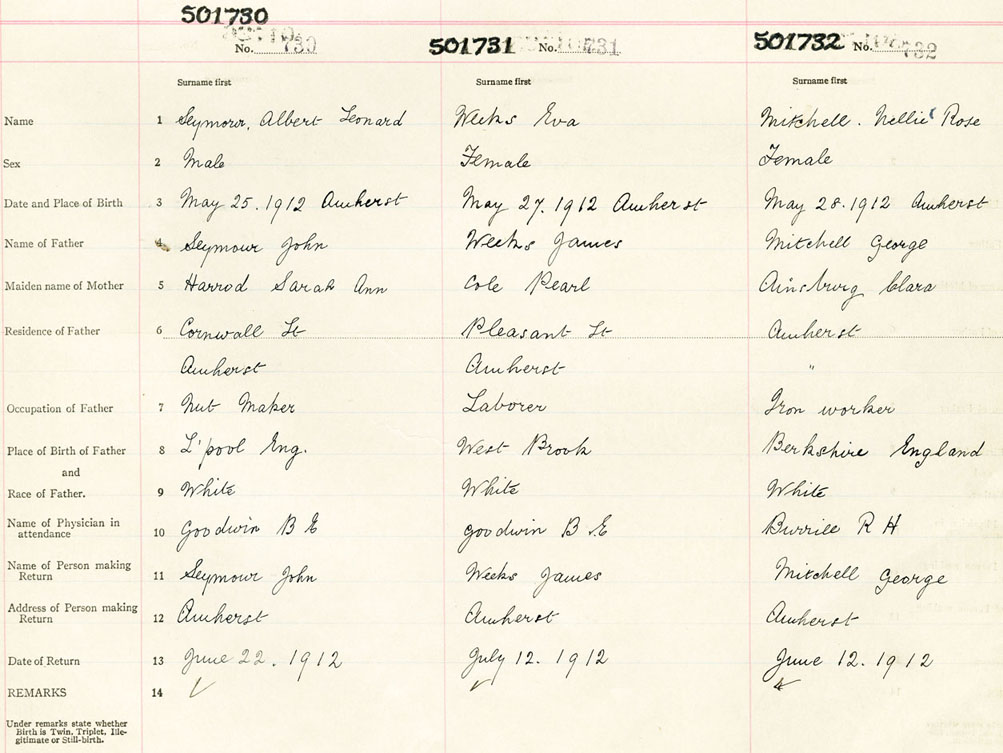 501730
No. 730
501731 No. 731
501732 No. 732
Surname first Surname first Surname first
Name 1 Seymour, Albert Leonard Weeks Eva Mitchell. Nellie Rose
Sex 2 Male Female Female
Date and Place of Birth 3 May 25. 1912 Amherst May 27. 1912 Amherst May 28. 1912 Amherst
Name of Father 4 Seymour John Weeks James Mitchell George
Maiden name of Mother 5 Harrod Sarah Ann Cole Pearl Ainsburg Clara
Residence of Father 6 Cornwall St Pleasant St Amherst
Amherst Amherst "
Occupation of Father 7 Nut Maker Laborer Iron worker
Place of Birth of Father 8 L'pool Eng. West Brook Berkshire England
and
Race of Father. 9 White White White
Name of Physician in
attendance 10 Goodwin B E Goodwin B E Burrill R H
Name of Person making
Return 11 Seymour John Weeks James Mitchell George
Address of Person making
Return 12 Amherst Amherst Amherst
Date of Return 13 June 22. 1912 July 12. 1912 June 12. 1912
REMARKS 14
Under remarks state whether
Birth is Twin, Triplet, Ille-
gitimate or Still-birth.